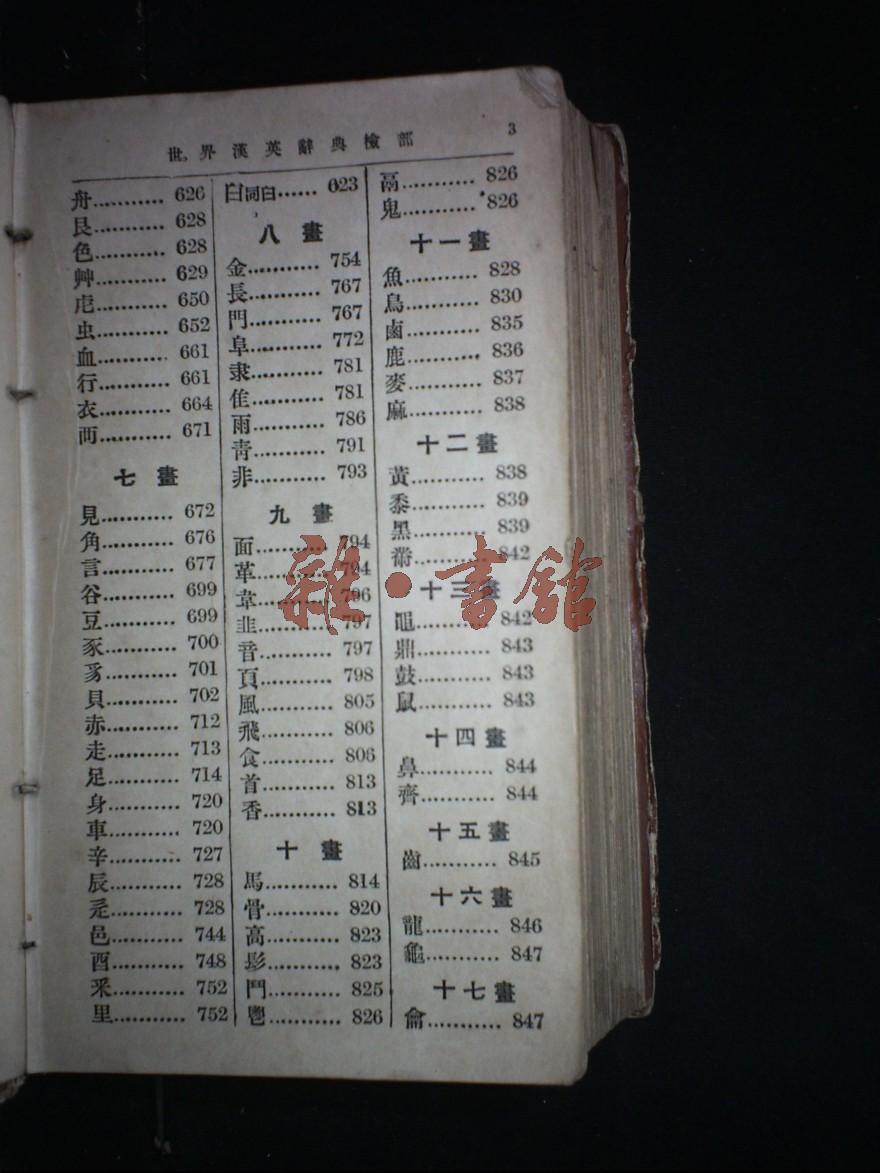 世界漢英辭典檢部 3
舟........... 626
艮........... 628
色........... 628
艸........... 629
虍........... 650
虫........... 652
血........... 661
行........... 661
衣........... 664
襾........... 671
七 畫
見........... 672
角........... 676
言........... 677
谷........... 699
豆........... 699
豕........... 700
豸........... 701
貝........... 702
赤........... 712
走........... 713
足........... 714
身........... 720
車........... 720
辛........... 727
辰........... 728
辵........... 728
邑........... 744
酉........... 748
釆........... 752
里........... 752
臼同𦥑...... 623
八 畫
金........... 754
長........... 767
門........... 767
阜........... 772
隶........... 781
隹........... 781
雨........... 786
靑........... 791
非........... 793
九 畫
面........... 794
革........... 794
韋........... 796
韭........... 797
音........... 797
頁........... 798
風........... 805
飛........... 806
食........... 806
首........... 813
香........... 813
十 畫
馬........... 814
骨........... 820
高........... 823
髟........... 823
鬥........... 825
鬯........... 826
鬲........... 826
鬼........... 826
十一畫
魚........... 828
鳥........... 830
鹵........... 835
鹿........... 836
麥........... 837
麻........... 838
十二畫
黃........... 838
黍........... 839
黑........... 839
黹........... 842
十三畫
黽........... 842
鼎........... 843
鼓........... 843
鼠........... 843
十四畫
鼻........... 844
齊........... 844
十五畫
齒........... 845
十六畫
龍........... 846
龜........... 847
十七畫
龠........... 847
雜·書館